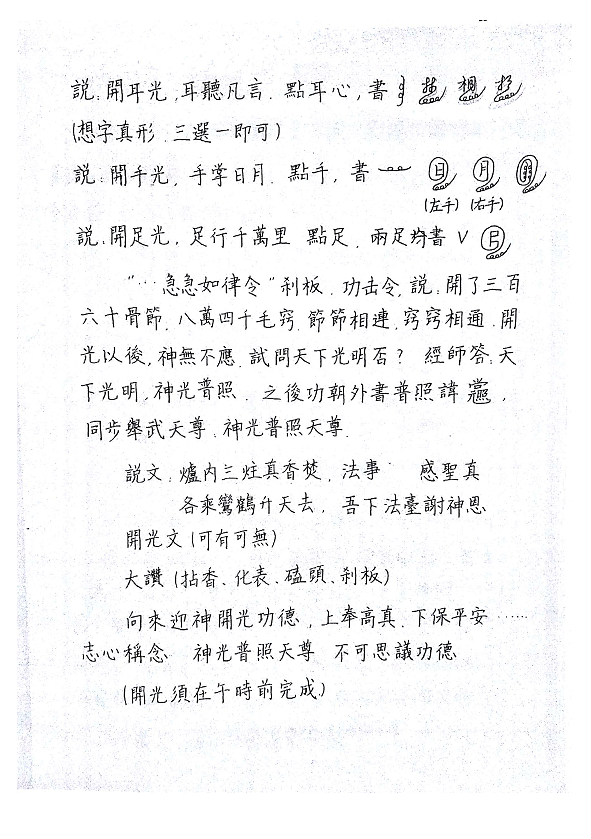 説：開耳光，耳聽凡言．點耳心，書
(想字真形．三選一即可)
説：開手光，手掌日月．點手，書 日 月
(左手) (右手)
説：開足光，足行千萬里 點足．兩足均書
"…急急如律令"刹板．功击令，説：開了三百
六十骨節．八萬四千毛竅．節節相連，竅竅相通．開
光以後，神無不應．試問天下光明否？ 經師答：天
下光明，神光普照．之後功朝外書普照諱，
同步舉武天尊：神光普照天尊．
説文：爐内三炷真香焚，法事 感聖真
各乘鸞鶴升天去，吾下法臺謝神恩
開光文(可有可無)
大讚(拈香、化表、磕頭、刹板)
向來迎神開光功德，上奉高真．下保平安……
志心稱念 神光普照天尊 不可思議功德
(開光須在午時前完成)